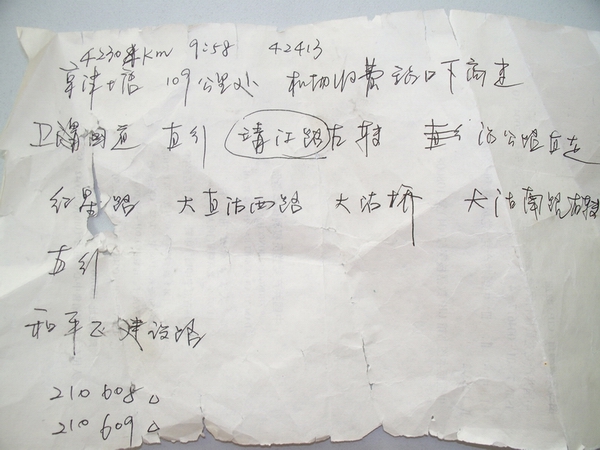 km 9:58 42413
京津塘 109公里处 机场收费站口下高速
卫国道 直行 靖江路右转
红星路 大直沽西路 大沽桥 大沽南路右转
直行
和平区建设路
210 608
210 609